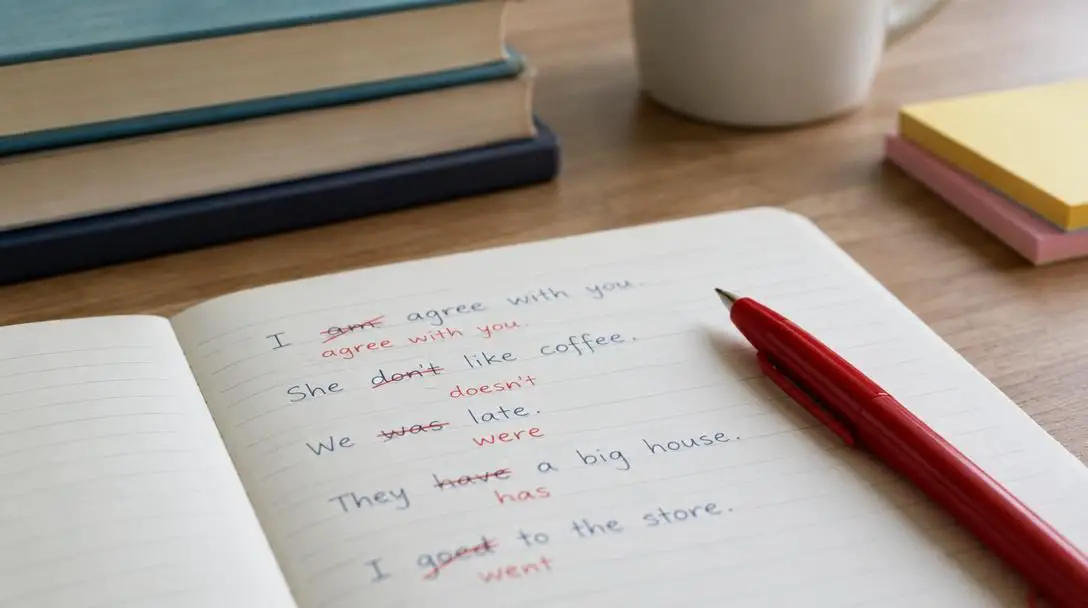 I am agree with you.
agree with you.
She don't like coffee.
doesn't
We was late.
were
They have a big house.
has
I goed to the store.
went